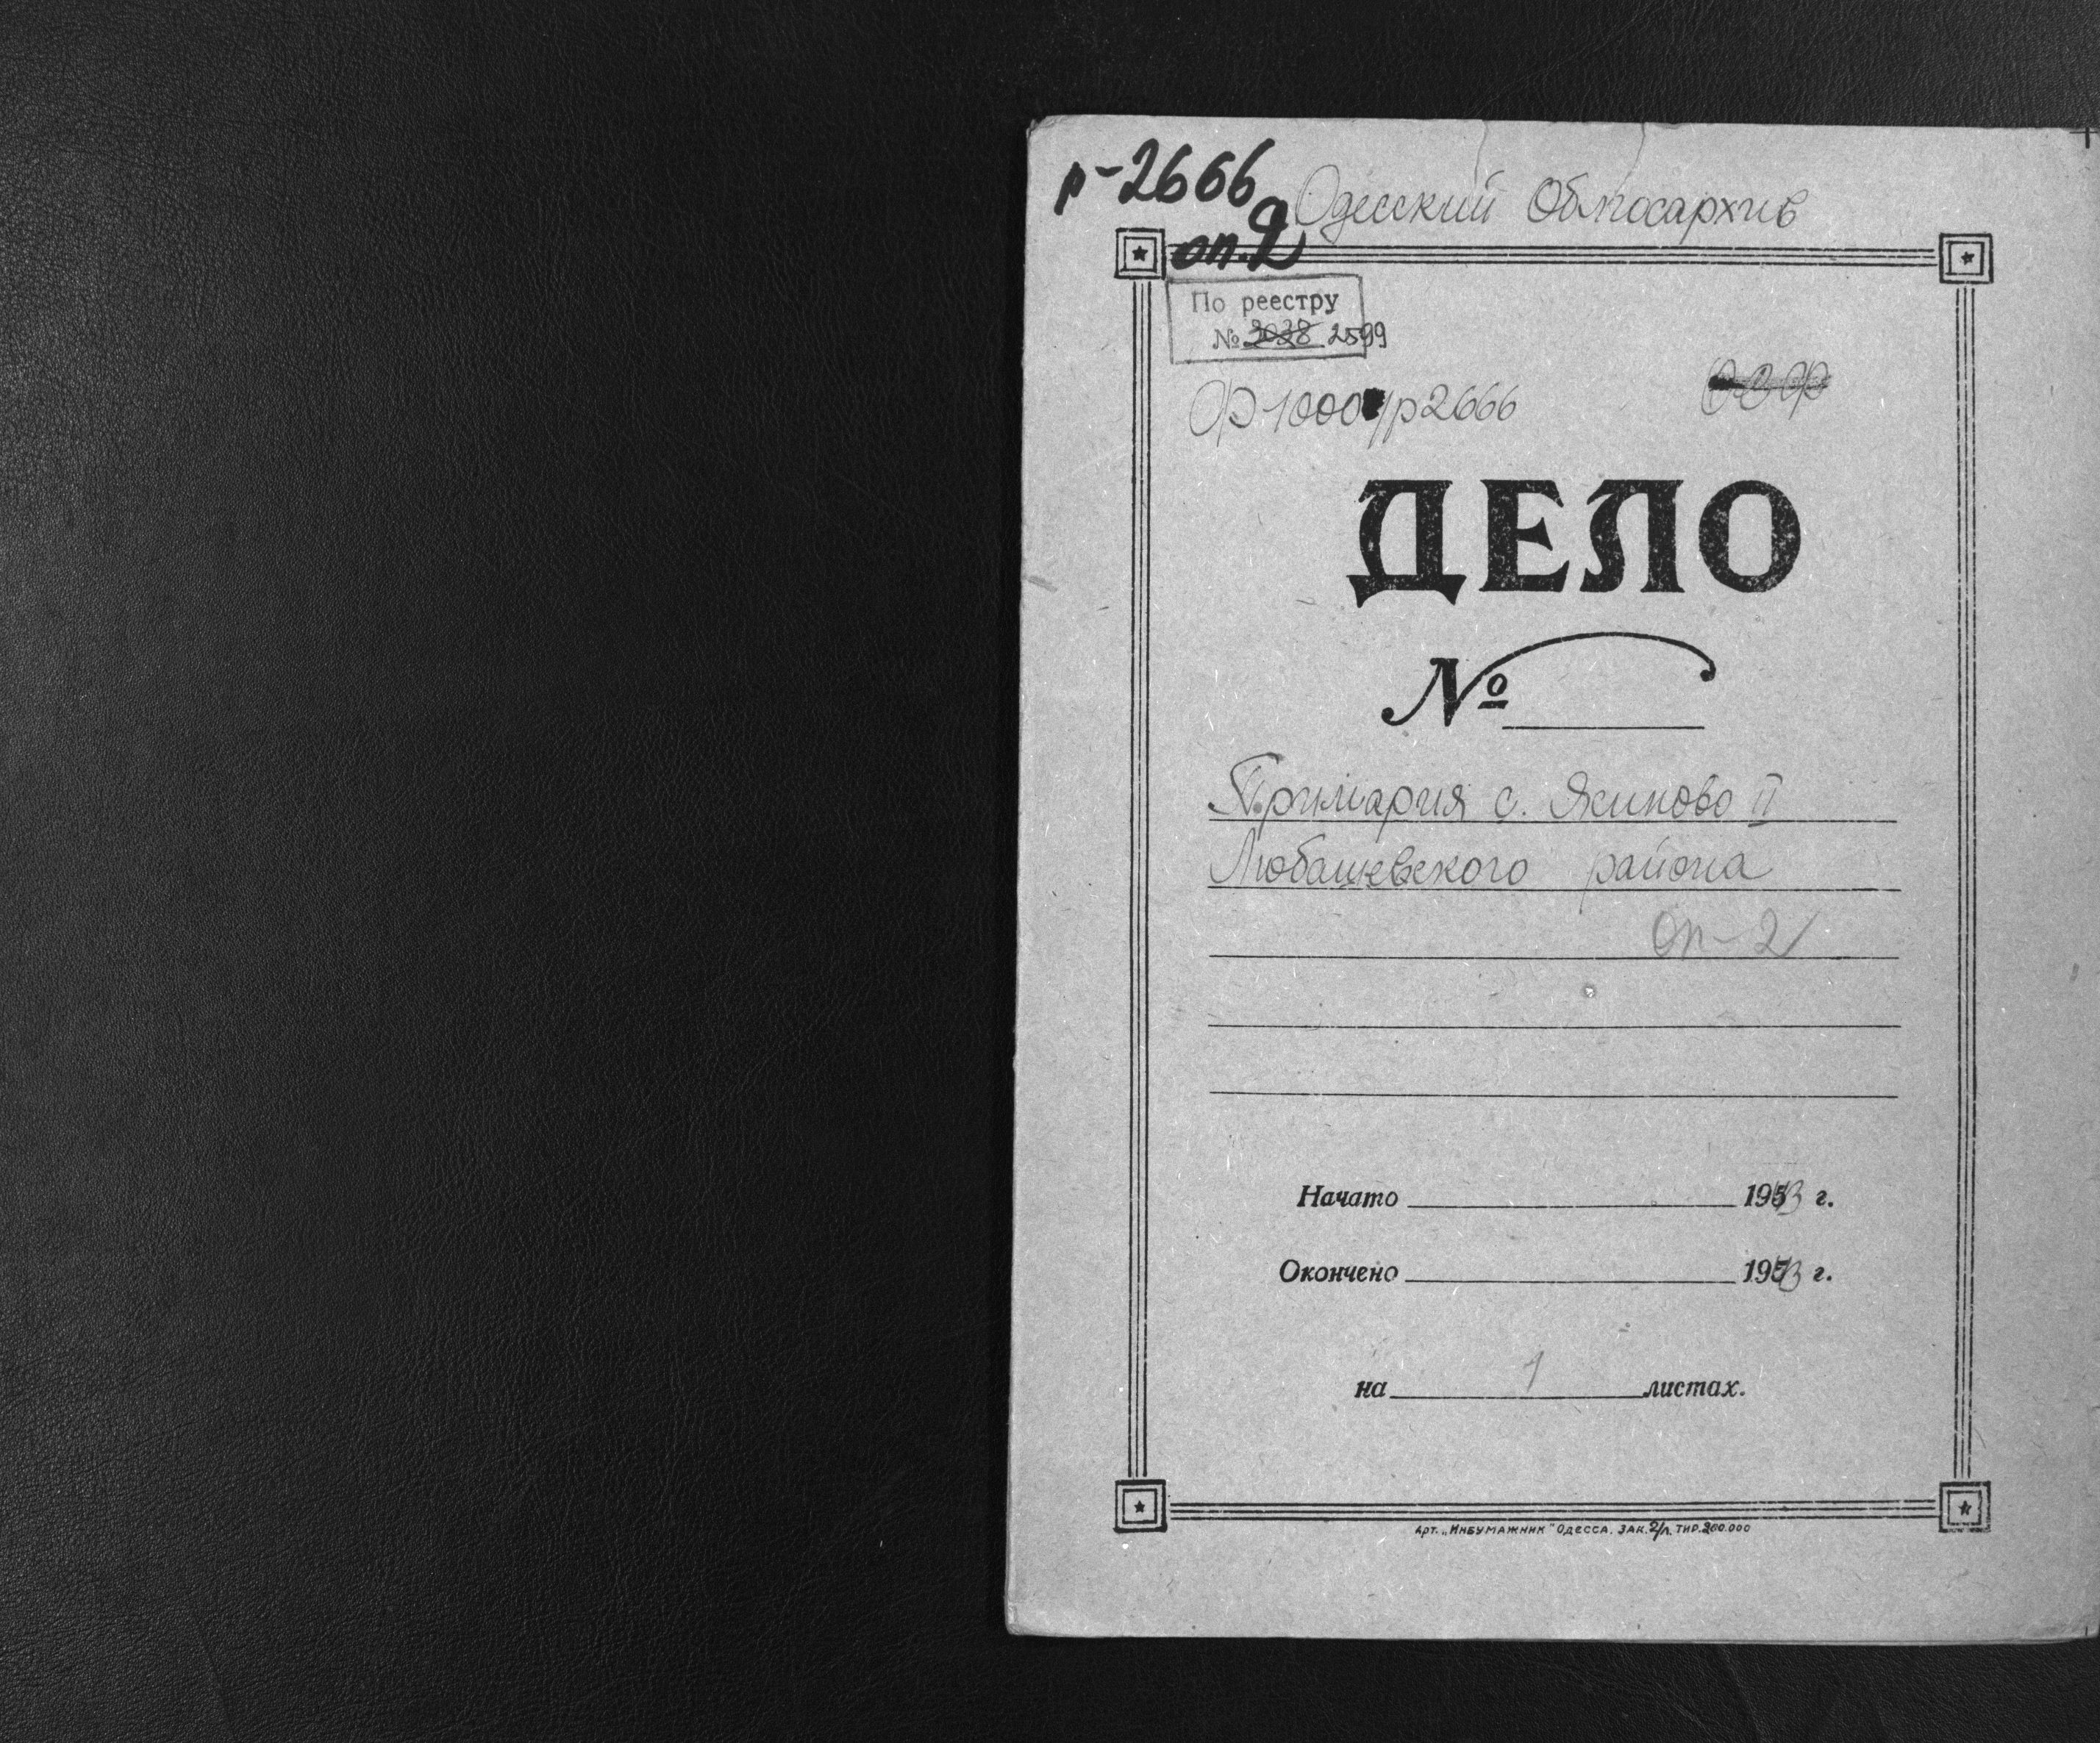 р-2666
оп.2
Одесский Облгосархив
По реестру
№ 3038 2599
Ф 1000 р2666
ДЕЛО
№
Примария с. Ясиново II
Любашевского района
оп-2
Начато 1943 г.
Окончено 1943 г.
на 1 листах.
Арт. „Инбумажник" Одесса. Зак. 2/л. Тир. 200.000